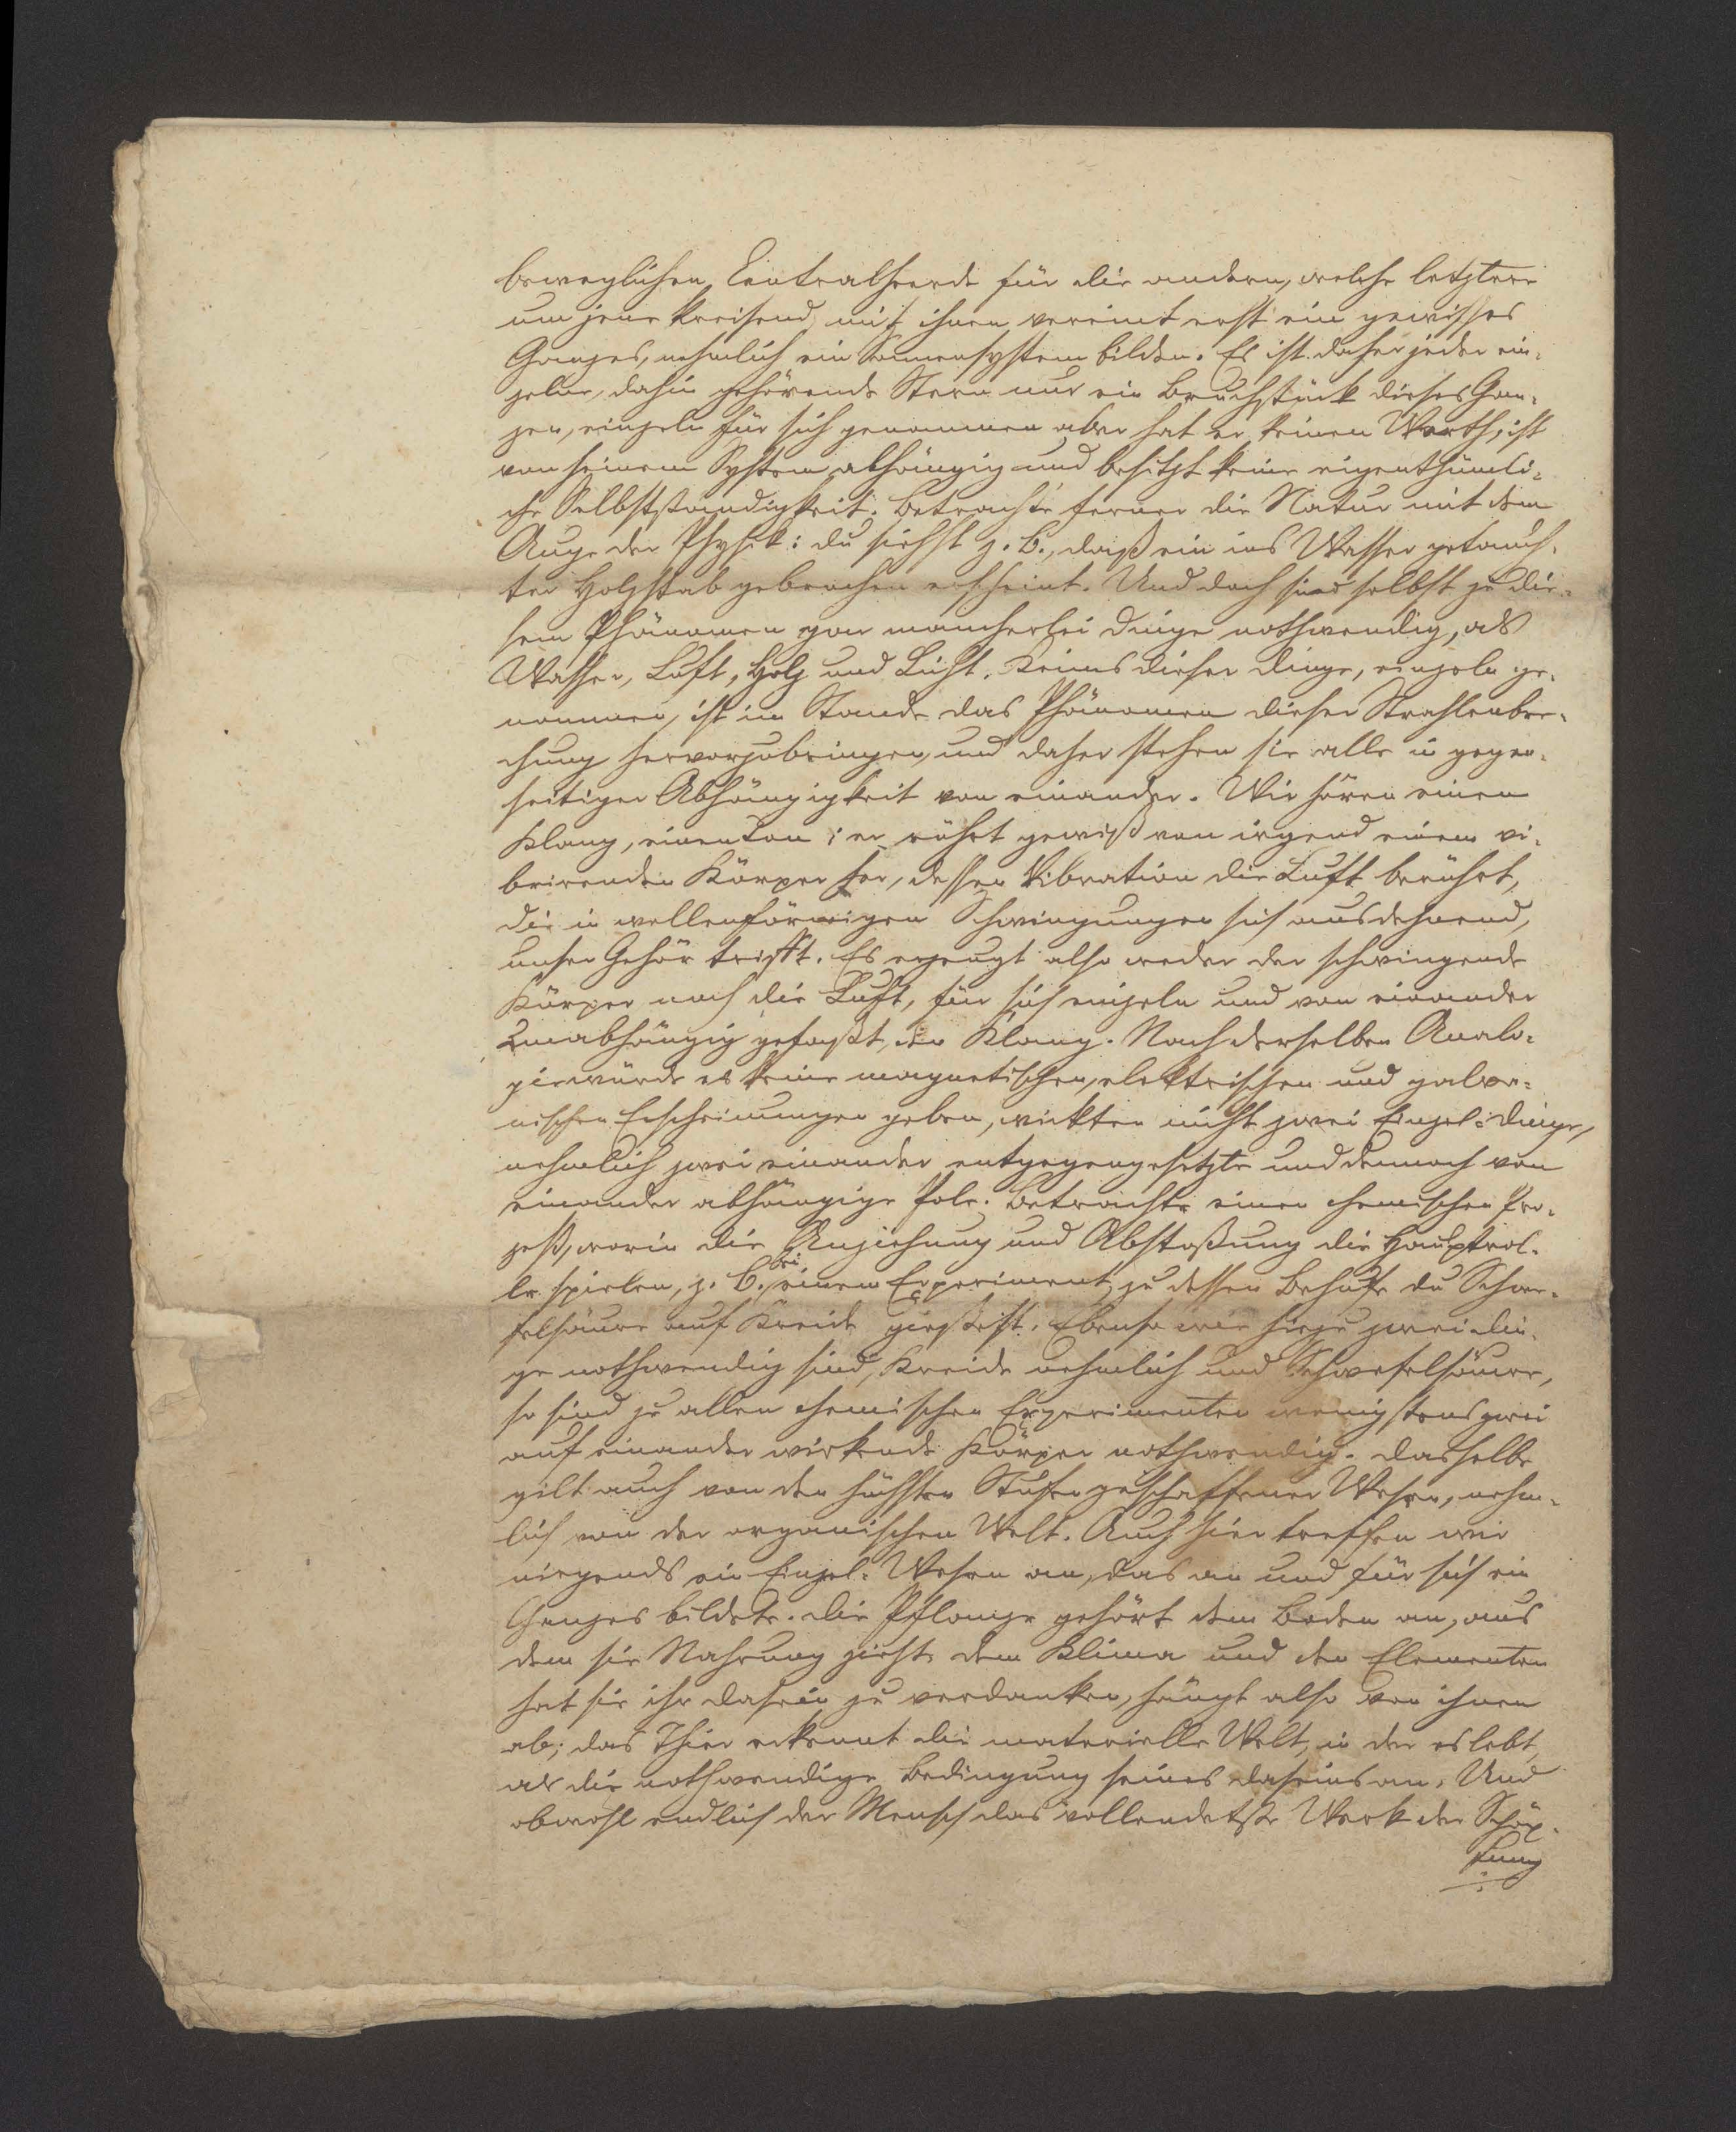 beweglichen Centralheerde für die andern, welche letztere
um jene kreisend, mit ihnen vereint erst ein gewisses
Ganzes, nehmlich ein Sonnensystem bilden. Es ist daher jeder ein-
zelne, dahin gehörende Stern nur ein Bruchstück dieses Gan-
zen, einzeln für sich genommen aber hat er keinen Werth, ist
von seinem System abhängig und besitzt keine eigenthümli-
che Selbstständigkeit. Betrachte ferner die Natur mit dem
Auge der Physik: du siehst z. B., daß ein ins Wasser getauch-
ter Holzstab gebrochen erscheint. Und doch sind selbst zu die-
sem Phänomen gar mancherlei Dinge nothwendig, als
Wasser, Luft, Holz und Licht. Keines dieser Dinge, einzeln ge-
nommen, ist im Stande das Phänomen dieser Strahlenbre-
chung hervorzubringen, und daher stehen sie alle in gegen-
seitiger Abhängigkeit von einander. Wir hören einen
Klang, einen Ton; er rührt gewiß von irgend einem vi-
brirenden Körper her, dessen Vibration die Luft berührt,
die in wellenförmigen Schwingungen sich ausdehnend,
unser Gehör trifft. Es erzeugt also weder der schwingende
Körper noch die Luft, für sich einzeln und von einander
unabhängig gefaßt, den Klang. Nach derselben Analo-
gie würde es keine magnetischen, elektrischen und galva-
nischen Erscheinungen geben, wirkten nicht zwei Einzel-Dinge,
nehmlich zwei einander entgegengesetzte und dennoch von
einander abhängige Pole. Betrachte einen chemischen Pro-
zeß, worin die Anziehung und Abstoßung die Hauptrol-
le spielen, z. B. bei einem Experiment, zu dessen Behufe du Schwe-
felsäure auf Kreide gießest. Ebenso wie hiezu zwei Din-
ge nothwendig sind, Kreide nehmlich und Schwefelsäure,
so sind zu allen chemischen Experimenten wenigstens zwei
auf einander wirkende Körper nothwendig. Dasselbe
gilt auch von den höchsten Stufen geschaffener Wesen, nehm-
lich von der organischen Welt. Auch hier treffen wir
nirgends ein Einzel-Wesen an, das an und für sich ein
Ganzes bildete. Die Pflanze gehört dem Boden an, aus
dem sie Nahrung zieht, dem Klima und den Elementen
hat sie ihr Dasein zu verdanken, hängt also von ihnen
ab; das Thier erkennt die materielle Welt, in der es lebt,
als die nothwendige Bedingung seines Daseins an. Und
obwohl endlich der Mensch das vollendetste Werk der Schöp-
fung